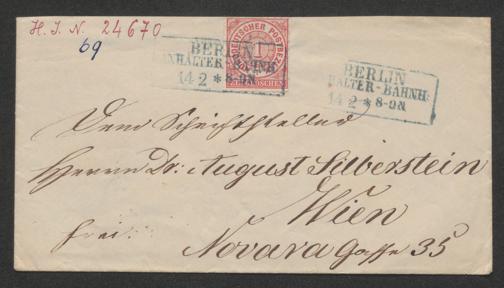 H. I. N. 24670
69
NORDDEUTSCHER POSTBEZIRK
1
GROSCHEN
BERLIN
ANHALTER-BAHNH.
14 2 * 8-9 N
BERLIN
ANHALTER-BAHNH.
14 2 * 8-9 N
Dem Schriftsteller
Herrn Dr: August Silberstein
Wien
frei.
Novaragasse 35